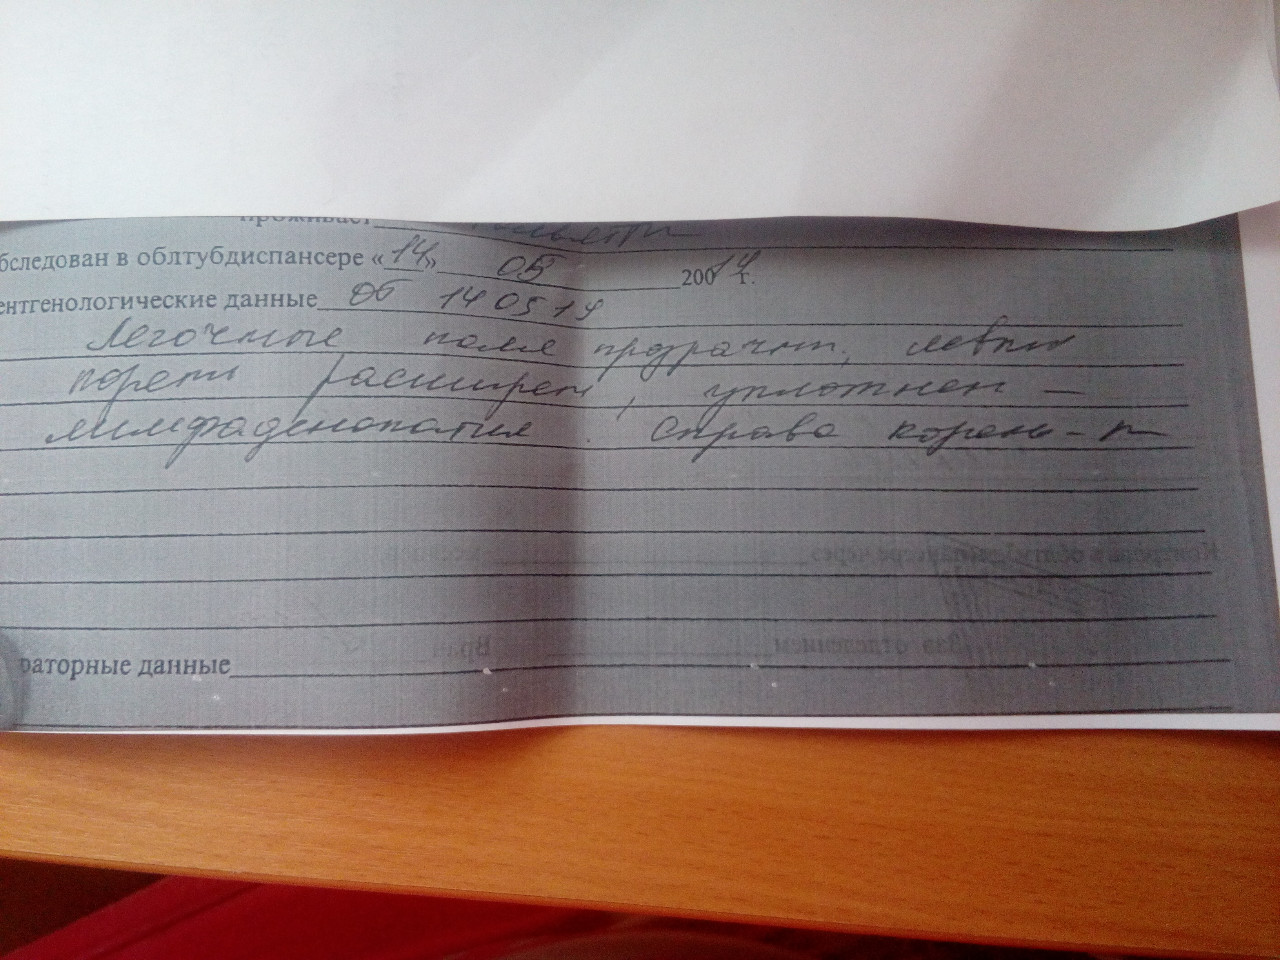 проживает
бследован в облтубдиспансере «14» 05 200 14 г.
ентгенологические данные от 14 05 14
Легочные поля прозрачн, левый
корень расширен, уплотнен –
лимфаденопатия. Справа корень – н
Контроль в облтубдиспансере через
Зав. отделением Врач
раторные данные